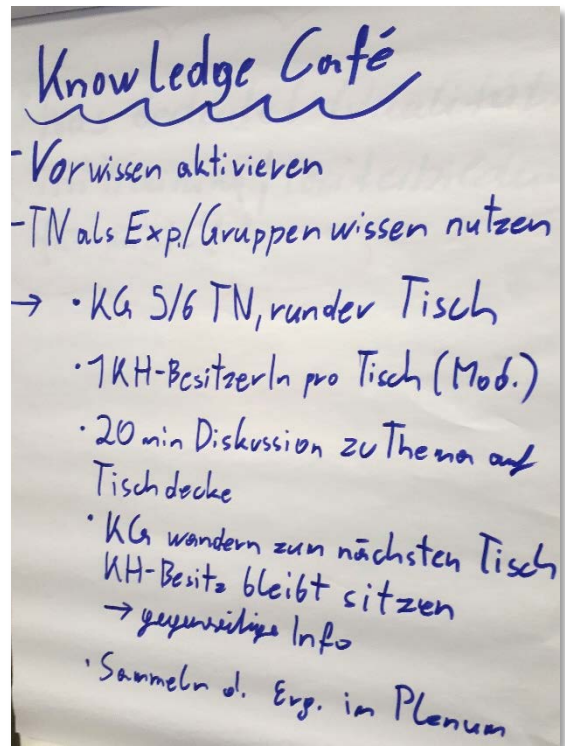 Knowledge Café
- Vorwissen aktivieren
- TN als Exp./Gruppenwissen nutzen
→ • KG 5/6 TN, runder Tisch
• 1 KH-BesitzerIn pro Tisch (Mod.)
• 20 min Diskussion zu Thema auf
Tischdecke
• KG wandern zum nächsten Tisch
KH-Besitz bleibt sitzen
→ gegenseitige Info
• Sammeln d. Erg. im Plenum